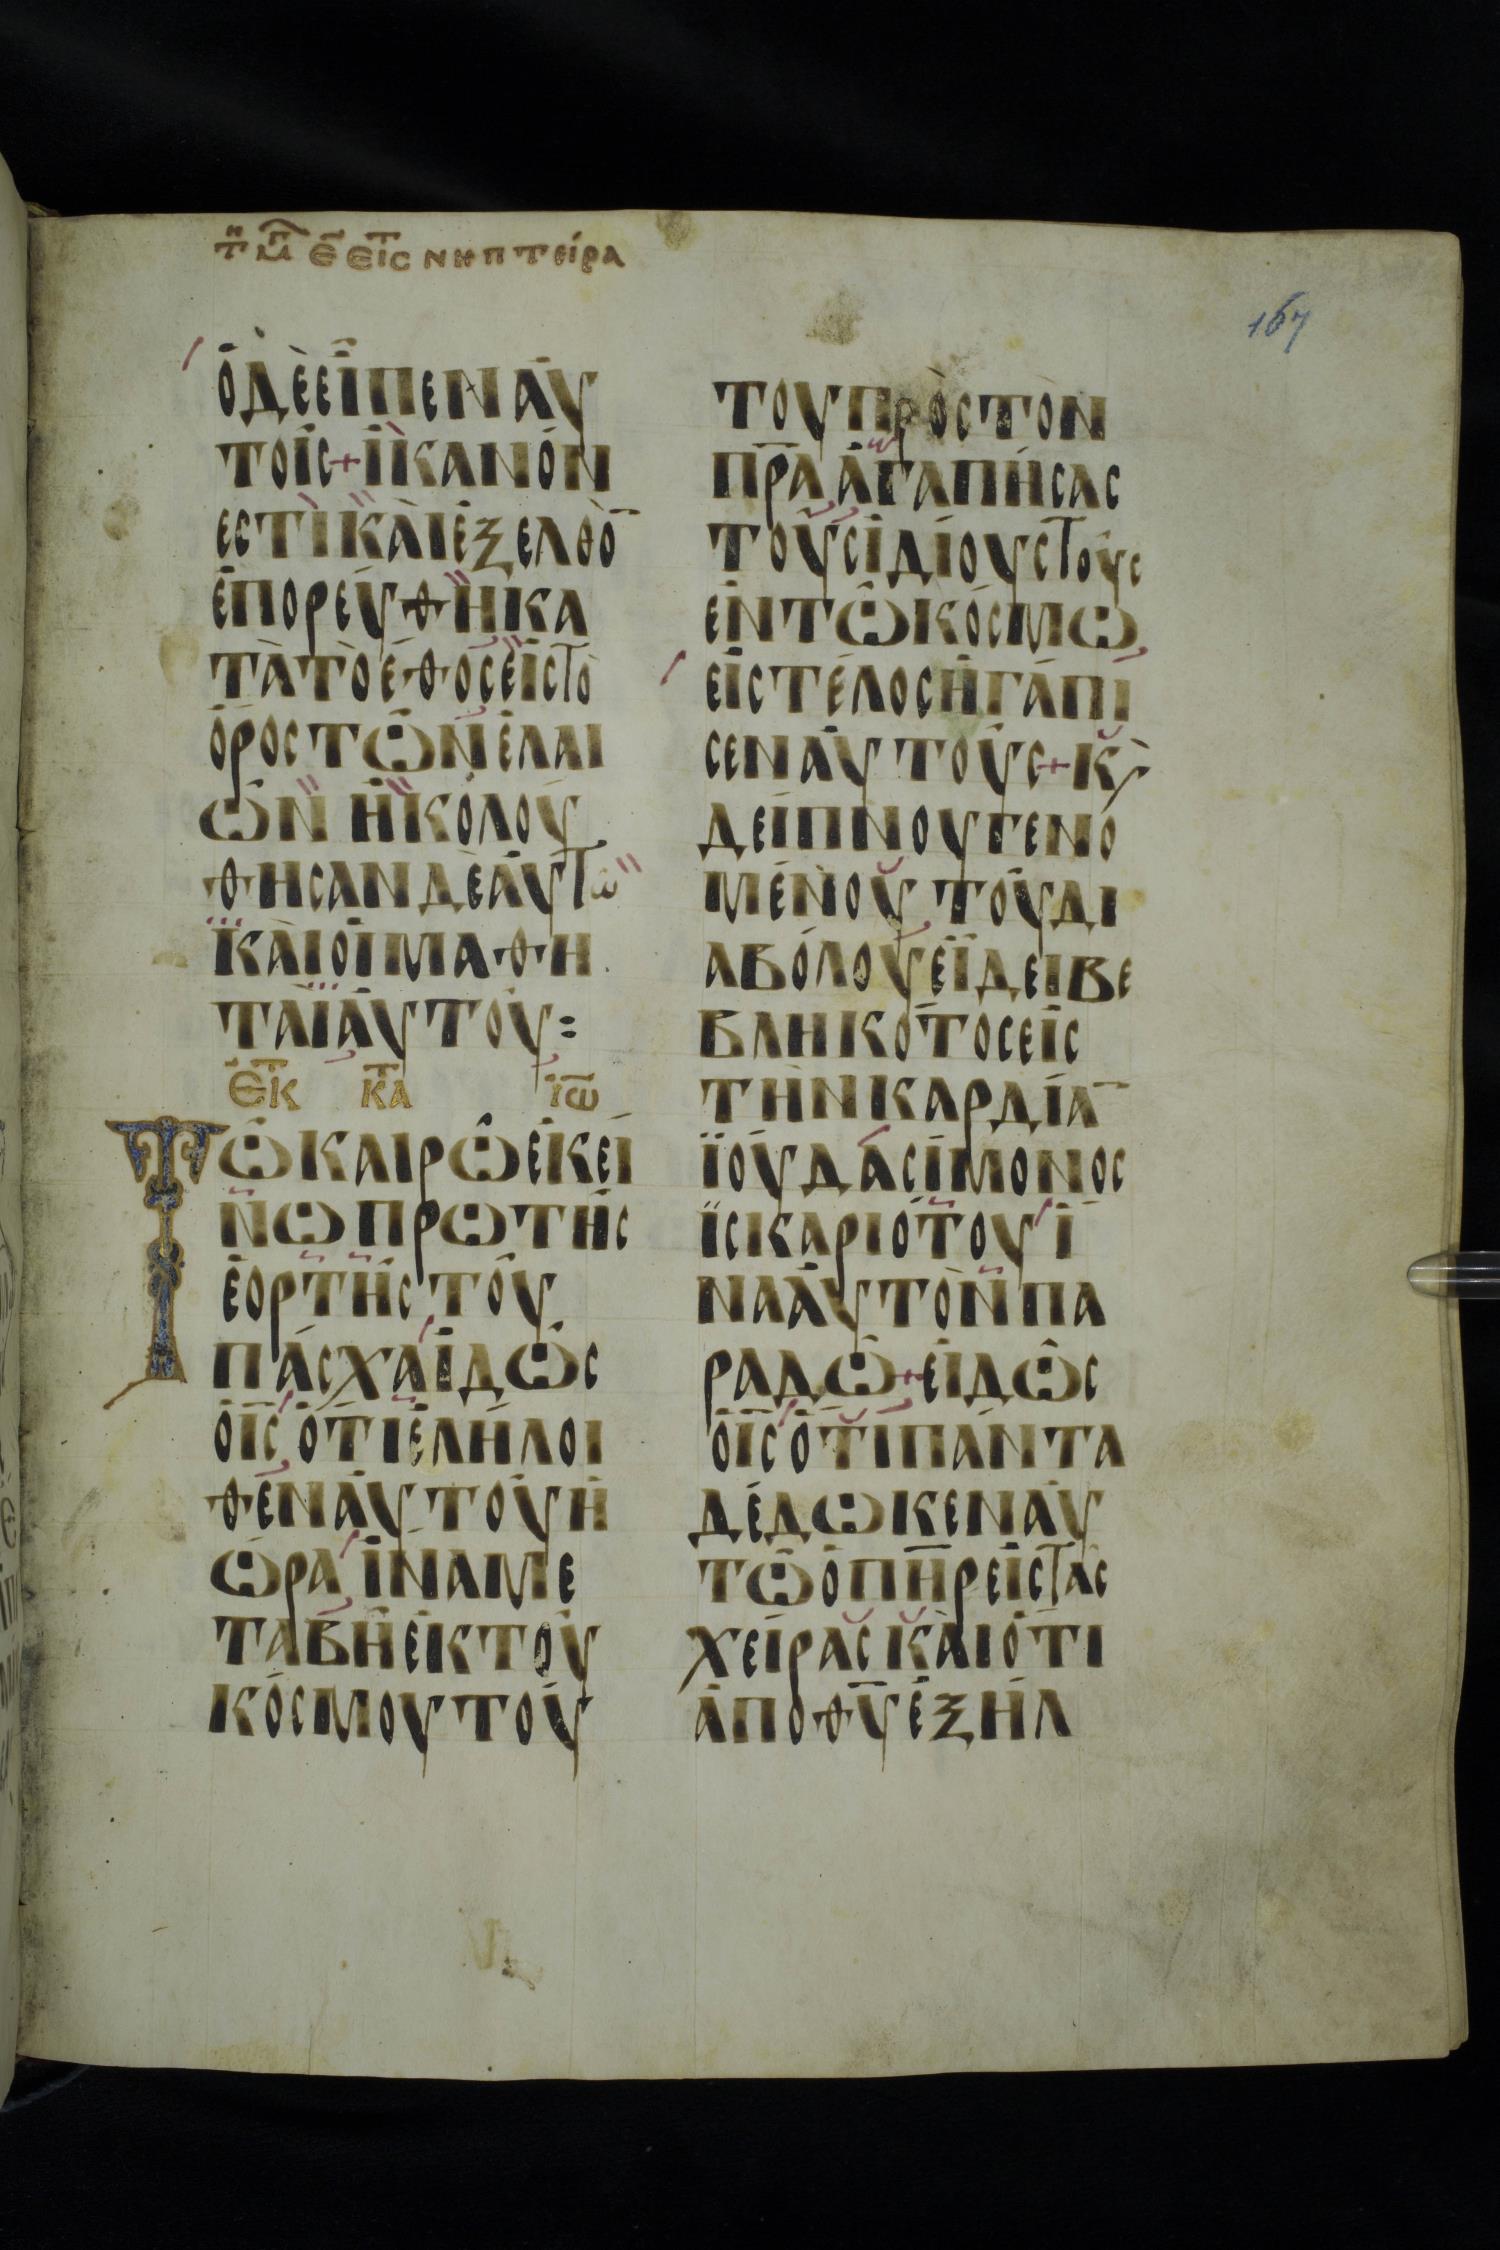 Τῇ Μ̅ Ε̅ ΕἸΣ ΝΗΠΤΕΊΡΑ
167
ὉΔῈΕἾΠΕΝΑΥ
ΤΟῖς+ἸΚΑΝΌΝ
ΕςΤῚΚΑῚἘΞΕΛΘΟ̅
ἘΠΟΡΕΎΘΗΚΑ
ΤᾺΤῸἜΘΟςΕἸςΤῸ
ὌΡΟςΤῶΝἘΛΑΙ
ῶΝἨΚΟΛΟΎ
ΘΗςΑΝΔῈΑΥΤῶ
ΚΑῚΟἹΜΑΘΗ
ΤΑῚΑΥΤΟΥ:
ἘΚ ΚΑΤ ἸΩ̅
ΤῶΚΑΙΡῶἘΚΕΊ
ΝΩΠΡΩΤῆς
ἙΟΡΤῆςΤΟῦ
ΠΆςΧΑἸΔῺς
Ὁ Ι̅ς̅ ὍΤΙἘΛΉΛΟΙ
ΘΕΝΑΥΤΟῦἩ
ὭΡΑἽΝΑΜΕ
ΤΑΒῆἘΚΤΟῦ
ΚΌςΜΟΥΤΟΎ
ΤΟΥΠΡῸςΤῸΝ
Π̅Ρ̅Α̅ἈΓΑΠΉςΑς
ΤΟῪςἸΔΊΟΥςΤΟῪς
ἘΝΤῶΚΌςΜΩ
ΕἸςΤΈΛΟςἨΓΆΠΙ
ςΕΝΑΥΤΟΎς+Κ̀
ΔΕΊΠΝΟΥΓΕΝΟ
ΜΈΝΟΥΤΟῦΔΙ
ΑΒΌΛΟΥΕἸΔΕΙΒΕ
ΒΛΗΚΟΤΟςΕἸς
ΤῊΝΚΑΡΔΊΑ̅
ΪΟΎΔΑςΊΜΟΝΟς
ΪςΚΑΡΙΌΤΟΥἽ
ΝΑΑΥΤῸΝΠΑ
ΡΑΔῶ+ΕἸΔῺς
Ὁ Ι̅ς̅ ὍΤΙΠΆΝΤΑ
ΔΈΔΩΚΕΝΑΥ
ΤῶὉΠΗΡΕἸςΤᾺς
ΧΕΊΡΑςΚΑῚὍΤΙ
ἈΠΟΘ̅Υ̅ἘΞΗΛ